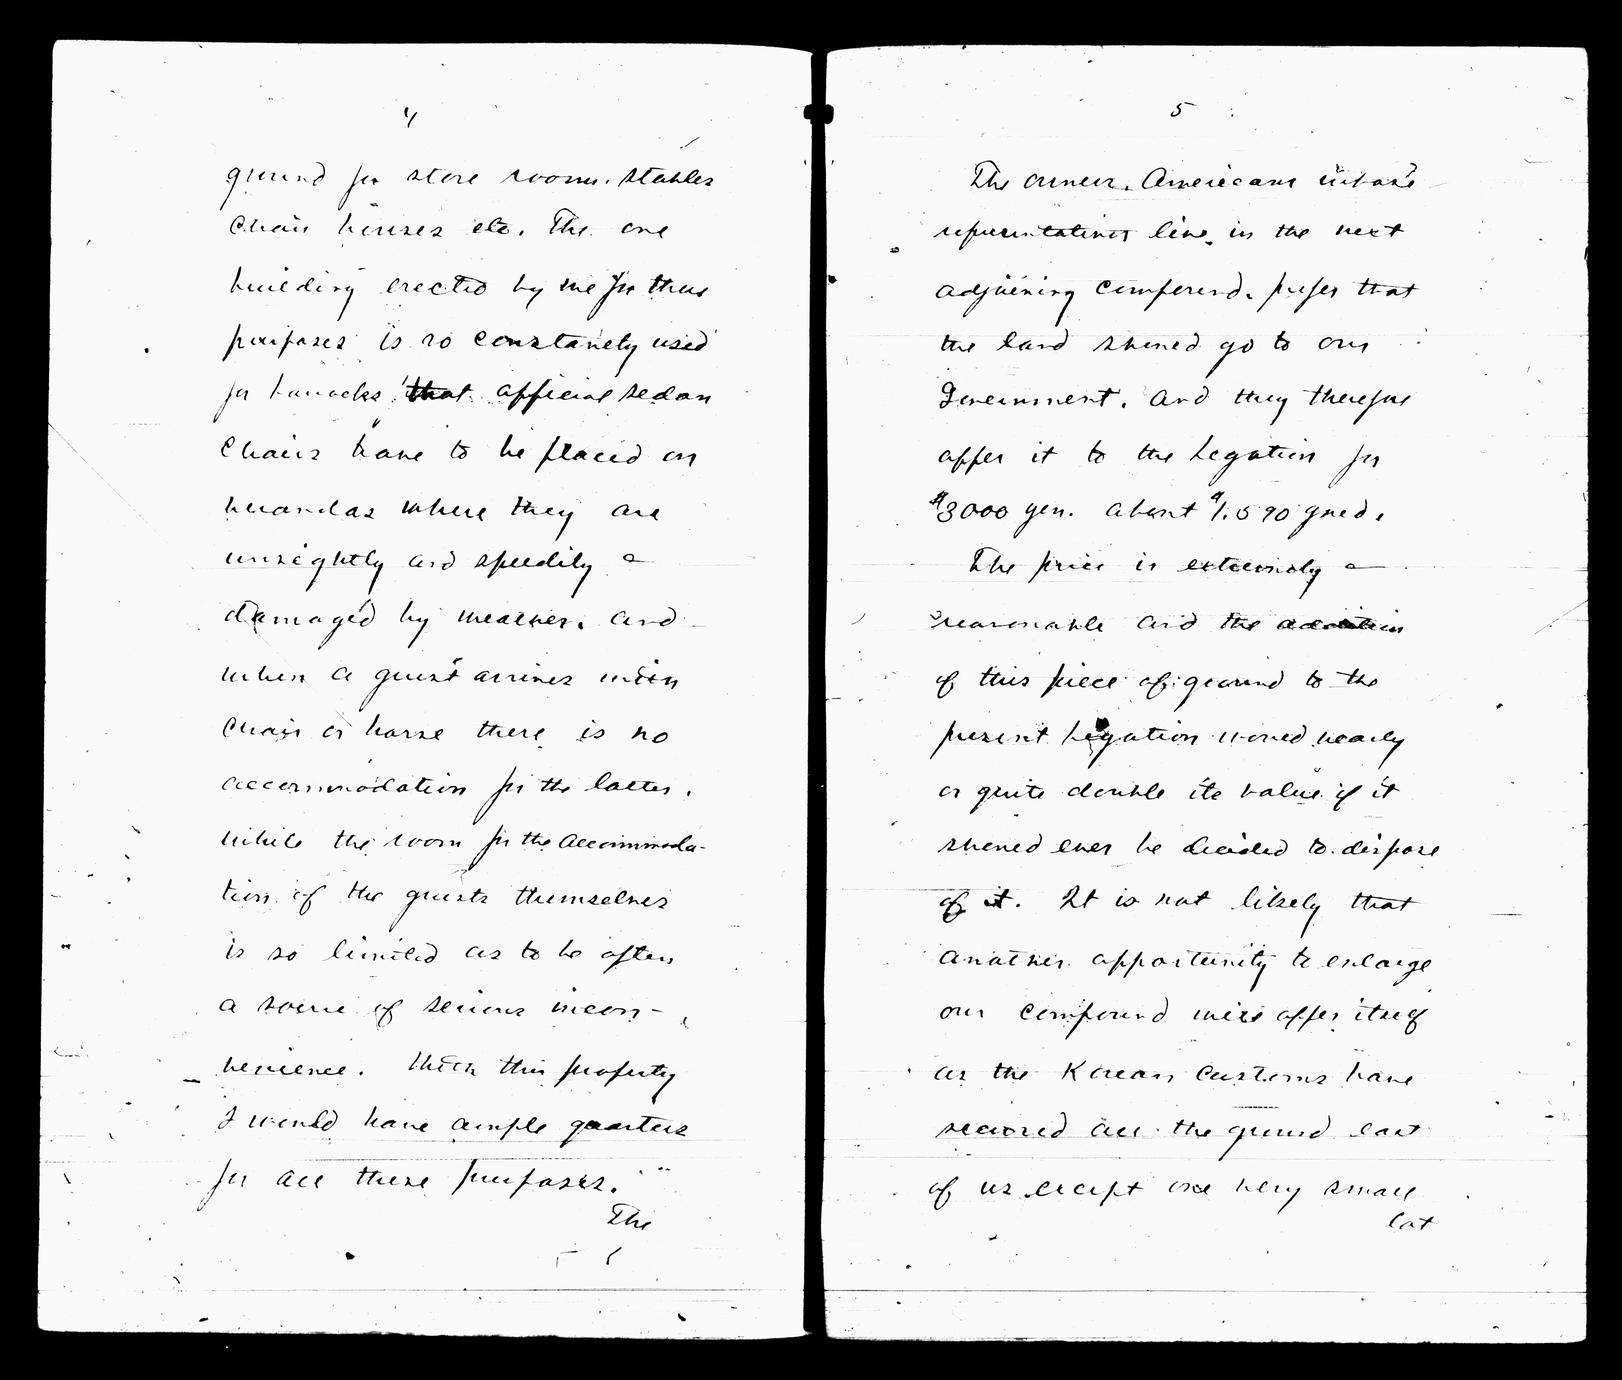 4
ground for store rooms, stables
chair houses etc. The one
building erected by me for these
purposes is so constantly used
for barracks that official sedan
chairs have to be placed on
verandas where they are
unsightly and speedily
damaged by weather, and
when a guest arrives with
chair or horse there is no
accommodation for the latter,
while the room for the accommoda-
tion of the guests themselves
is so limited as to be often
a source of serious incon-
venience. With this property
I would have ample quarters
for all these purposes.
The
5
The owners, Americans whose
representatives live in the next
adjoining compound, prefer that
the land should go to our
Government, and they therefore
offer it to the Legation for
$3000 yen, about $1.590 gold.
The price is extremely
reasonable and the addition
of this piece of ground to the
present Legation would nearly
or quite double its value if it
should ever be decided to dispose
of it. It is not likely that
another opportunity to enlarge
our compound will offer itself
as the Korean Customs have
secured all the ground east
of us except one very small
lot